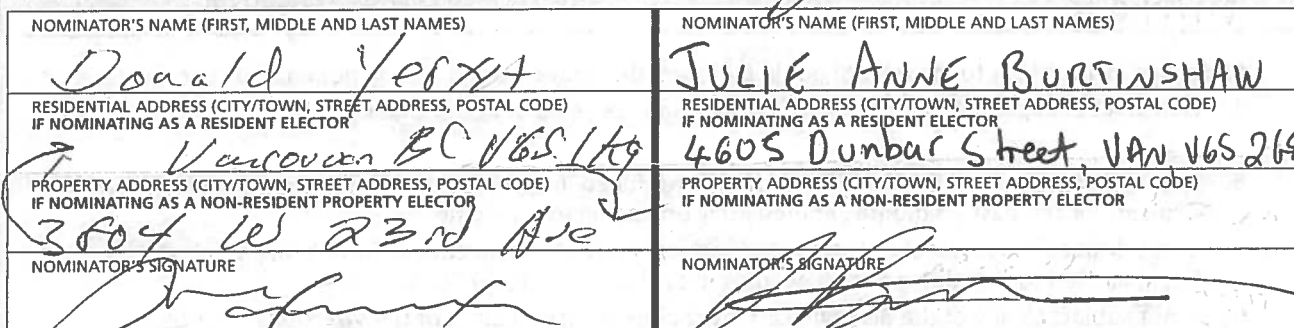 NOMINATOR'S NAME (FIRST, MIDDLE AND LAST NAMES)
Donald Yerxa
RESIDENTIAL ADDRESS (CITY/TOWN, STREET ADDRESS, POSTAL CODE)
IF NOMINATING AS A RESIDENT ELECTOR
Vancouver BC V6S 1K9
PROPERTY ADDRESS (CITY/TOWN, STREET ADDRESS, POSTAL CODE)
IF NOMINATING AS A NON-RESIDENT PROPERTY ELECTOR
3804 W 23rd Ave
NOMINATOR'S SIGNATURE
NOMINATOR'S NAME (FIRST, MIDDLE AND LAST NAMES)
JULIE ANNE BURTNSHAW
RESIDENTIAL ADDRESS (CITY/TOWN, STREET ADDRESS, POSTAL CODE)
IF NOMINATING AS A RESIDENT ELECTOR
4605 Dunbar Street, VAN V6S 2G8
PROPERTY ADDRESS (CITY/TOWN, STREET ADDRESS, POSTAL CODE)
IF NOMINATING AS A NON-RESIDENT PROPERTY ELECTOR
NOMINATOR'S SIGNATURE